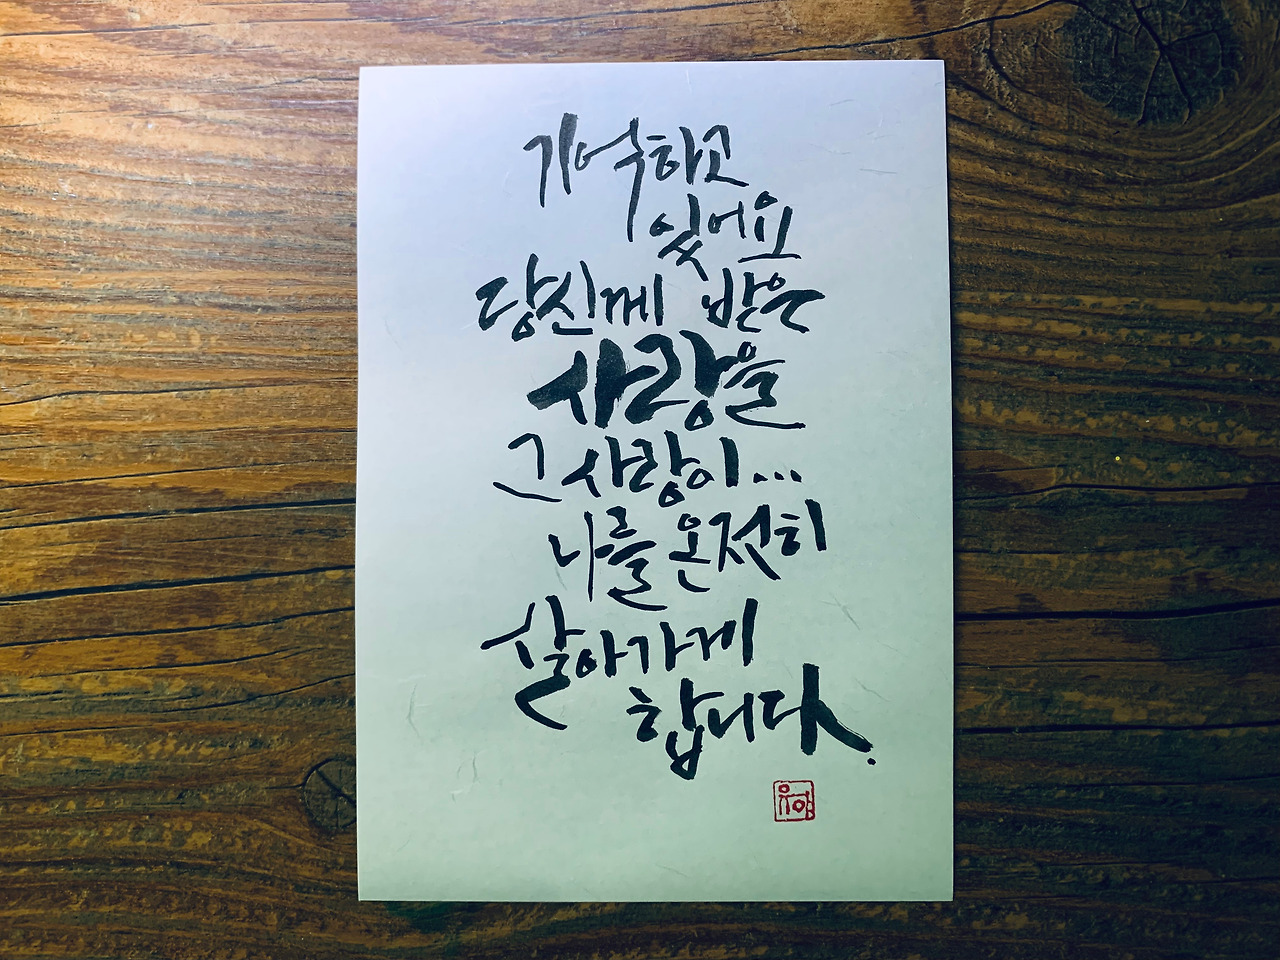 기억하고
있어요
당신께 받은
사랑을
그 사랑이...
나를 온전히
살아가게
합니다.